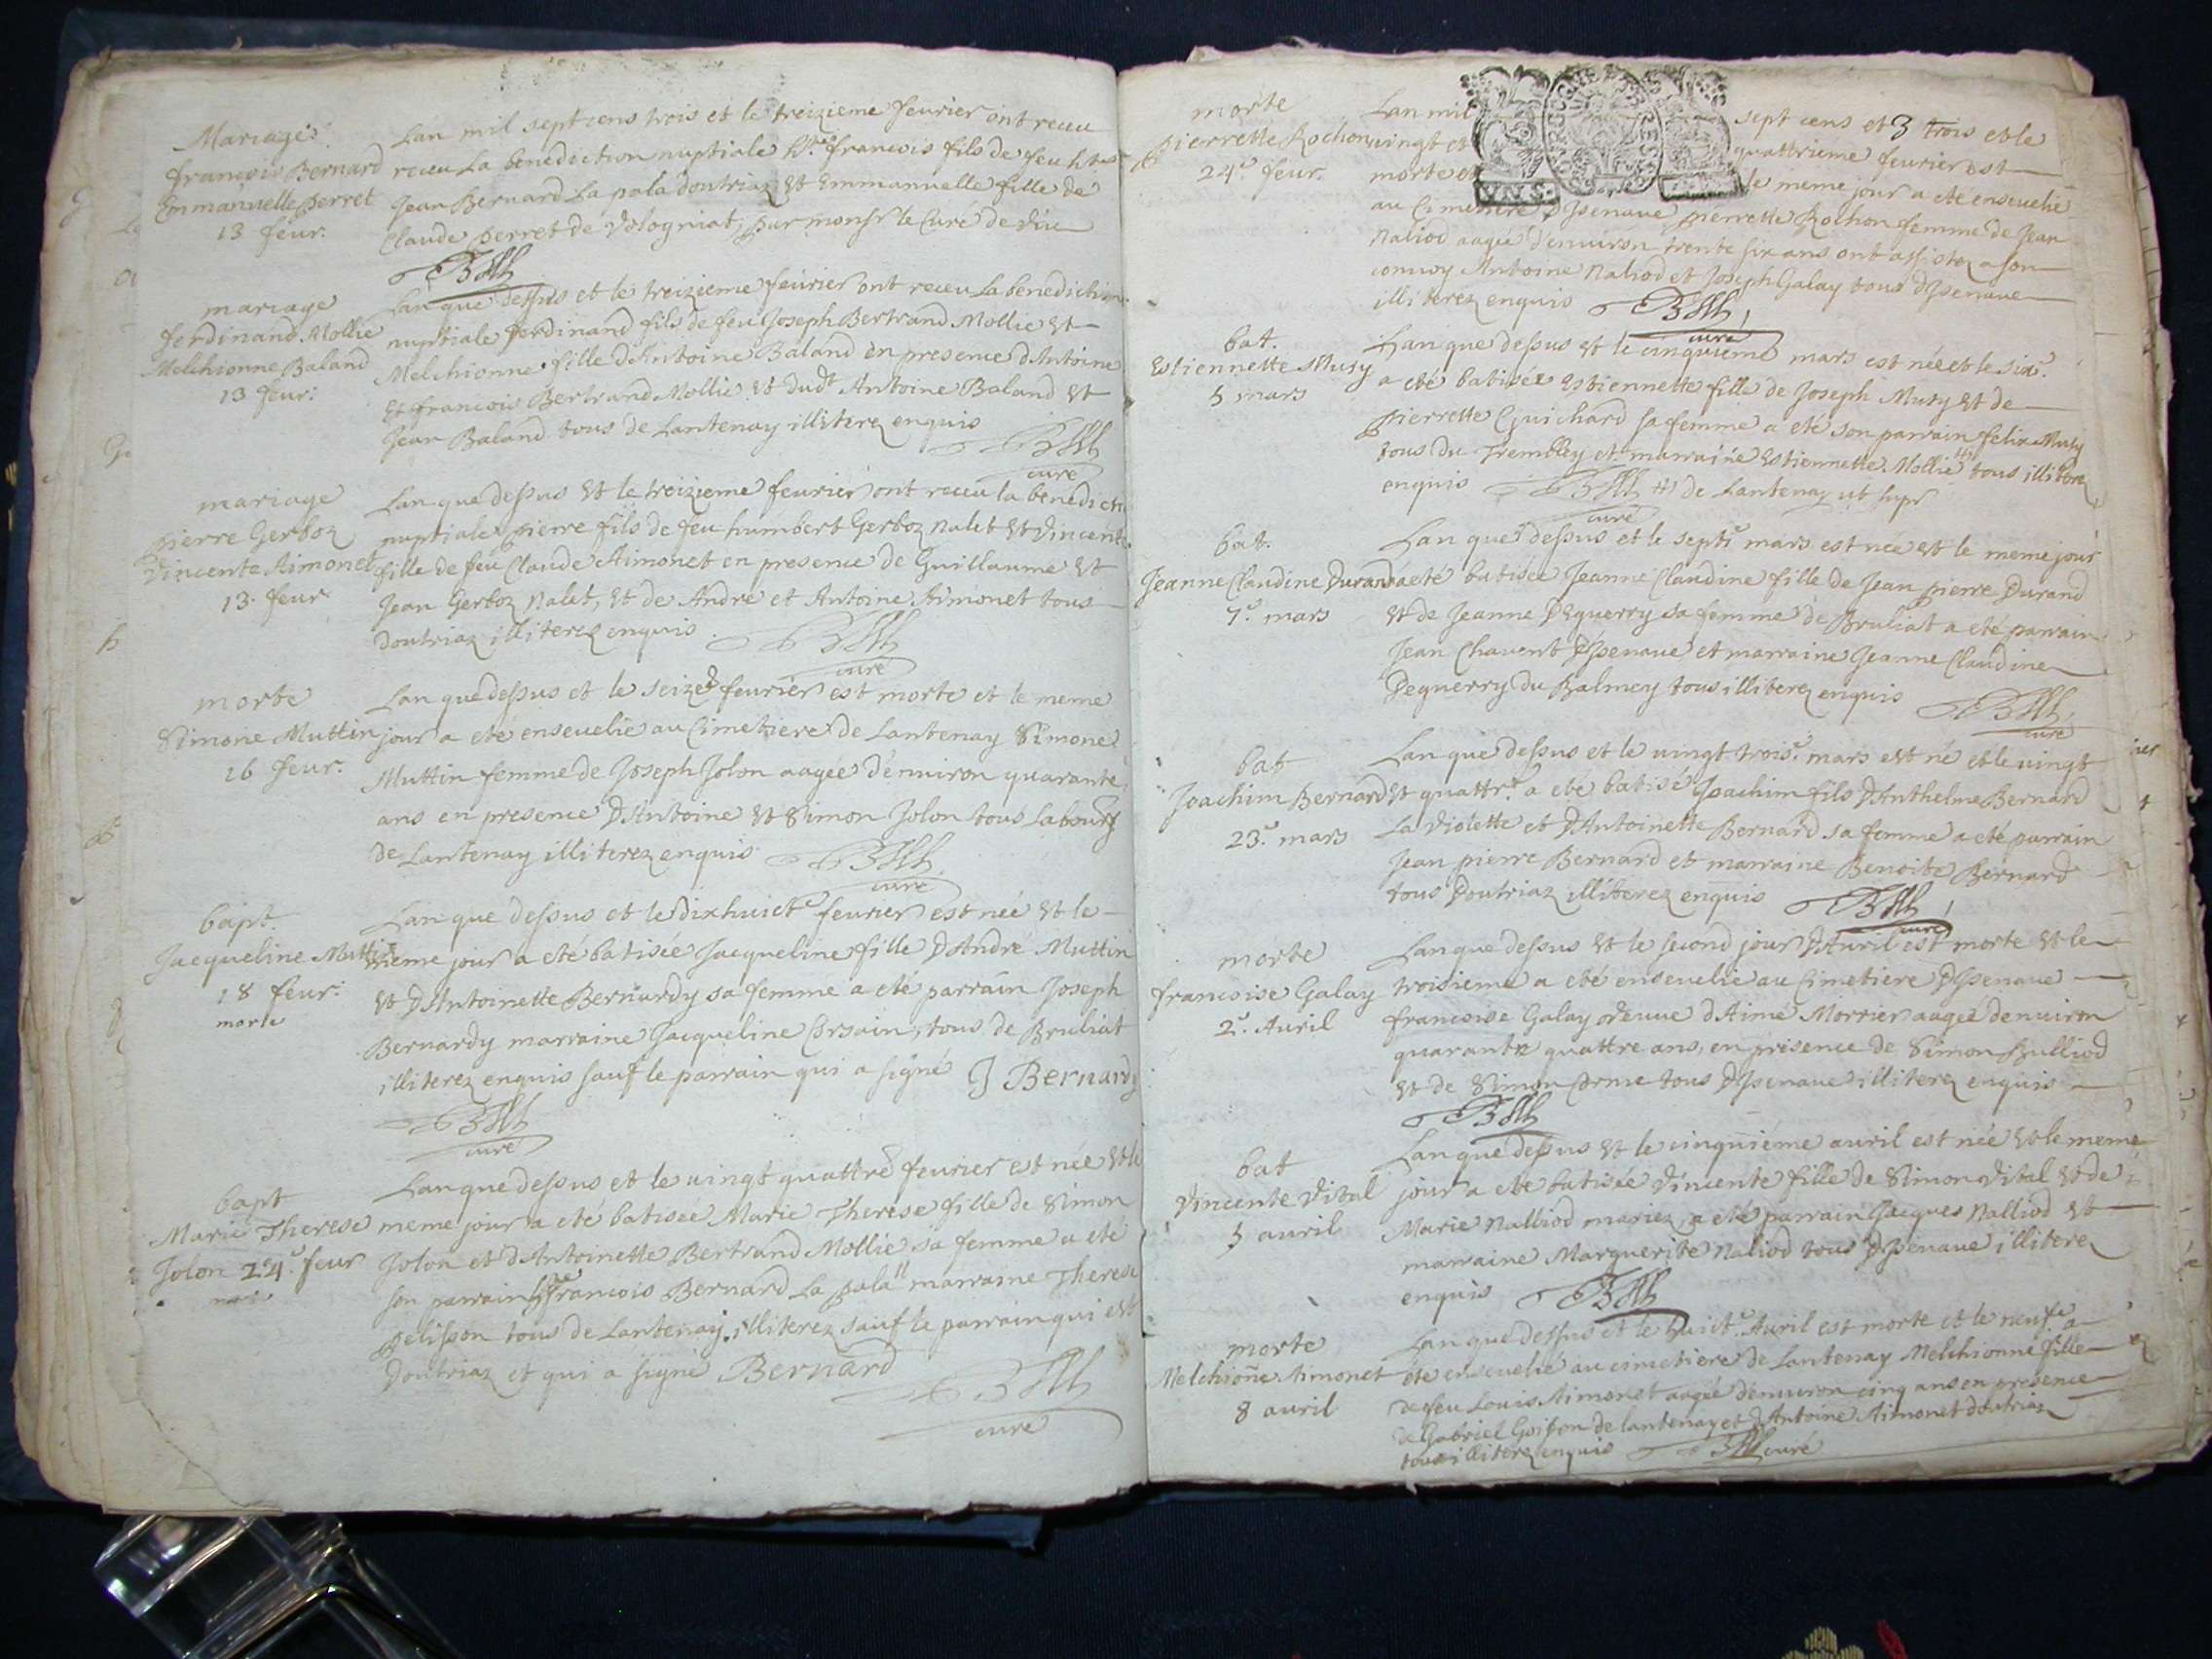 Mariages
françois Bernard
Emmanuelle perret
13 feur.
Lan mil sept cens trois et le treizieme feurier ont receu
receu La benediction nuptiale françois fils de feu
Jean Bernard La pala doutriaz et Emmanuelle fille de
Claude perret de Volognat, par monsr le Curé de
mariage
ferdinand Mollie
Melchionne Baland
13 feur:
Lan que dessus et le treizieme feurier ont receu La benediction
nuptiale ferdinand fils de feu Joseph Bertrand Mollie et
Melchionne fille dAntoine Baland en presence dAntoine
et francois Bertrand Mollie et dudt Antoine Baland et
Jean Baland tous de Lantenay illiterez enquis
curé
mariage
pierre Gerboz
Vincente Aimonet
13. feur
Lan que dessus et le treizieme feurier ont receu la benedicti
nuptiale pierre fils de feu humbert Gerboz nalet et Vincente
fille de feu Claude Aimonet en presence de Guillaume et
Jean Gerboz nalet, et de André et Antoine Aimonet tous
doutriaz illiterez enquis
curé
morte
Simone Muttin
16 feur.
Lan que dessus et le seize feurier est morte et le meme
jour a eté enseuelie au Cimetiere de Lantenay Simone
Muttin femme de Joseph Jolon aagée denuiron quarante
ans en presence DAntoine et Simon Jolon tous Labourg
de Lantenay illiterez enquis
curé
bapt.
Jacqueline Muttin
18 feur:
morte
Lan que dessus et le dixhuicte feurier est née et le
meme jour a eté batisée Jacqueline fille DAndré Muttin
et DAntoinette Bernardy sa femme a eté parrain Joseph
Bernardy marraine Jacqueline Corsain, tous de Bruliat
illiterez enquis sauf le parrain qui a signé J Bernardy
curé
bapt
Marie Therese
Jolon 24e. feur
Lan que dessus et le uingt quattre feurier est née et le
meme jour a eté batisée Marie Therese fille de Simon
Jolon et dAntoinette Bertrand Mollie sa femme a eté
son parrain francois Bernard La pala marraine Therese
pelisson tous de Lantenay illiterez sauf le parrain qui est
Doutriaz et qui a signé Bernard
curé
morte
pierrette Rochon
24e. feur.
Lan mil sept cens et 3 trois et le
uingt et quattrieme feurier est
morte et le meme jour a eté enseuelie
au Cimetiere DJzenaue pierrette Rochon femme de Jean
Naliod aagée denuiron trente six ans ont assistez a son
conuoy Antoine Naliod et Joseph Galay tous dJzenaue
illiterez enquis
curé
bat.
Estiennette Musy
5 mars
Lan que dessus et le cinquieme mars est née et le sixe.
a eté batisée Estiennette fille de Joseph Musy et de
pierrette Guichard sa femme a eté son parrain felix Musy
tous du Trembley et marraine Estiennette Mollie tous illiterez
enquis de Lantenay ut supr
curé
bat.
Jeanne Claudine Durand
7e. mars
Lan que dessus et le septe mars est née et le meme jour
a eté batisée Jeanne Claudine fille de Jean pierre Durand
et de Jeanne Deguerry sa femme de Bruliat a eté parrain
Jean Chavent DJzenaue et marraine Jeanne Claudine
Deguerry du Balmey tous illiterez enquis
curé
bat
Joachim Bernard
23e. mars
Lan que dessus et le uingt troise. mars est né et le uingt
et quattre. a eté batisé Joachim fils DAnthelme Bernard
La Violette et DAntoinette Bernard sa femme a eté parrain
Jean pierre Bernard et marraine Benoite Bernard
tous Doutriaz illiterez enquis
curé
morte
francoise Galay
2e. Auril
Lan que dessus et le second jour DAuril est morte et le
troisieme a eté enseuelie au Cimetiere DJzenaue
francoise Galay dAimé Morrier aagée denuiron
quarante quattre ans, en presence de Simon
et de Simon Corme tous DJzenaue illiterez enquis
bat
Vincente Vital
5 auril
Lan que dessus et le cinquiéme auril est née et le meme
jour a eté batisée Vincente fille de Simon Vital et de
Marie Nalliod mariez a eté parrain Jacques Nalliod et
marraine Marguerite Naliod tous DJzenaue illiterez
enquis
morte
Melchione Aimonet
8 auril
Lan que dessus et le huicte. Auril est morte et le neufe. a
eté enseuelie au cimetiere de Lantenay Melchionne fille
de feu Louis Aimonet aagée denuiron cinq ans en presence
de Gabriel Goisson de lantenay et DAntoine Aimonet doutriaz
tous illiterez enquis curé